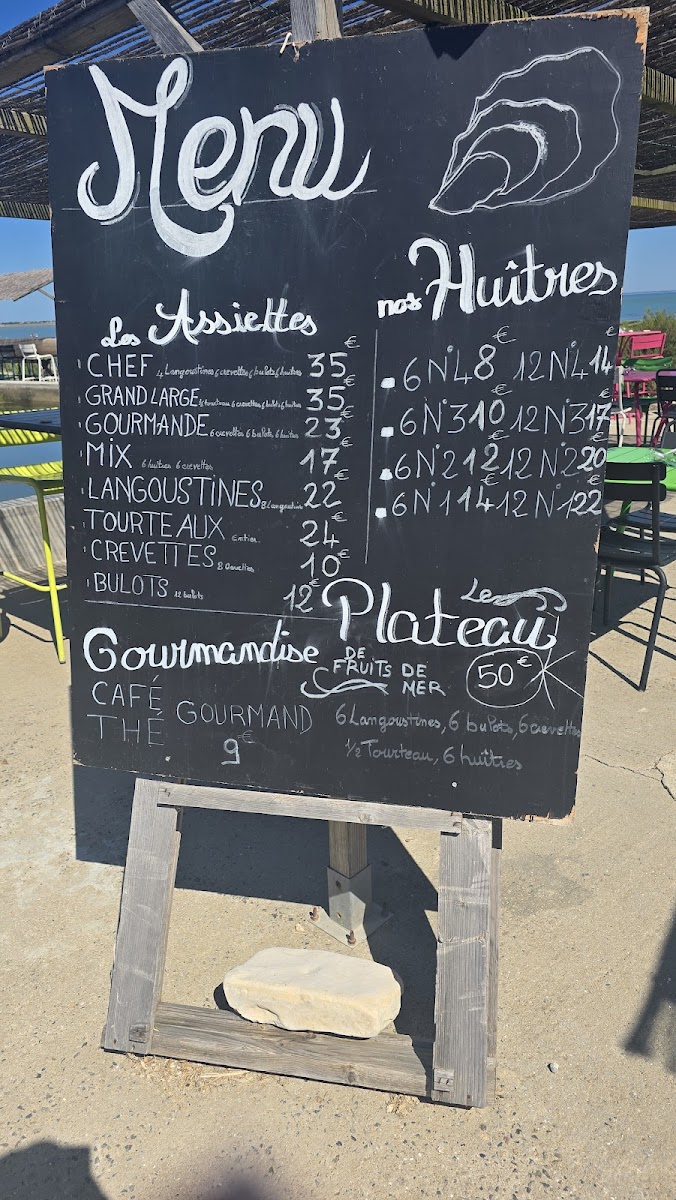 Menu
Les Assiettes
CHEF 4 Langoustines 6 crevettes 6 bulots 6 huîtres 35€
GRAND LARGE ½ tourteau 6 crevettes 6 bulots 6 huîtres 35€
GOURMANDE 6 crevettes 6 bulots 6 huîtres 23€
MiX 6 huîtres 6 crevettes 17€
LANGOUSTiNES 8 Langoustines 22€
TOURTEAUX Entier 24€
CREVETTES 8 Crevettes 10€
BULOTS 12 bulots 12€
nos Huîtres
6 N°4 8€ 12 N°4 14€
6 N°3 10€ 12 N°3 17€
6 N°2 12€ 12 N°2 20€
6 N°1 14€ 12 N°1 22€
Gourmandise
CAFÉ
THÉ
GOURMAND
9€
Le Plateau
DE
FRUITS DE
MER
50€
6 Langoustines, 6 bulots, 6 crevettes
½ Tourteau, 6 huîtres